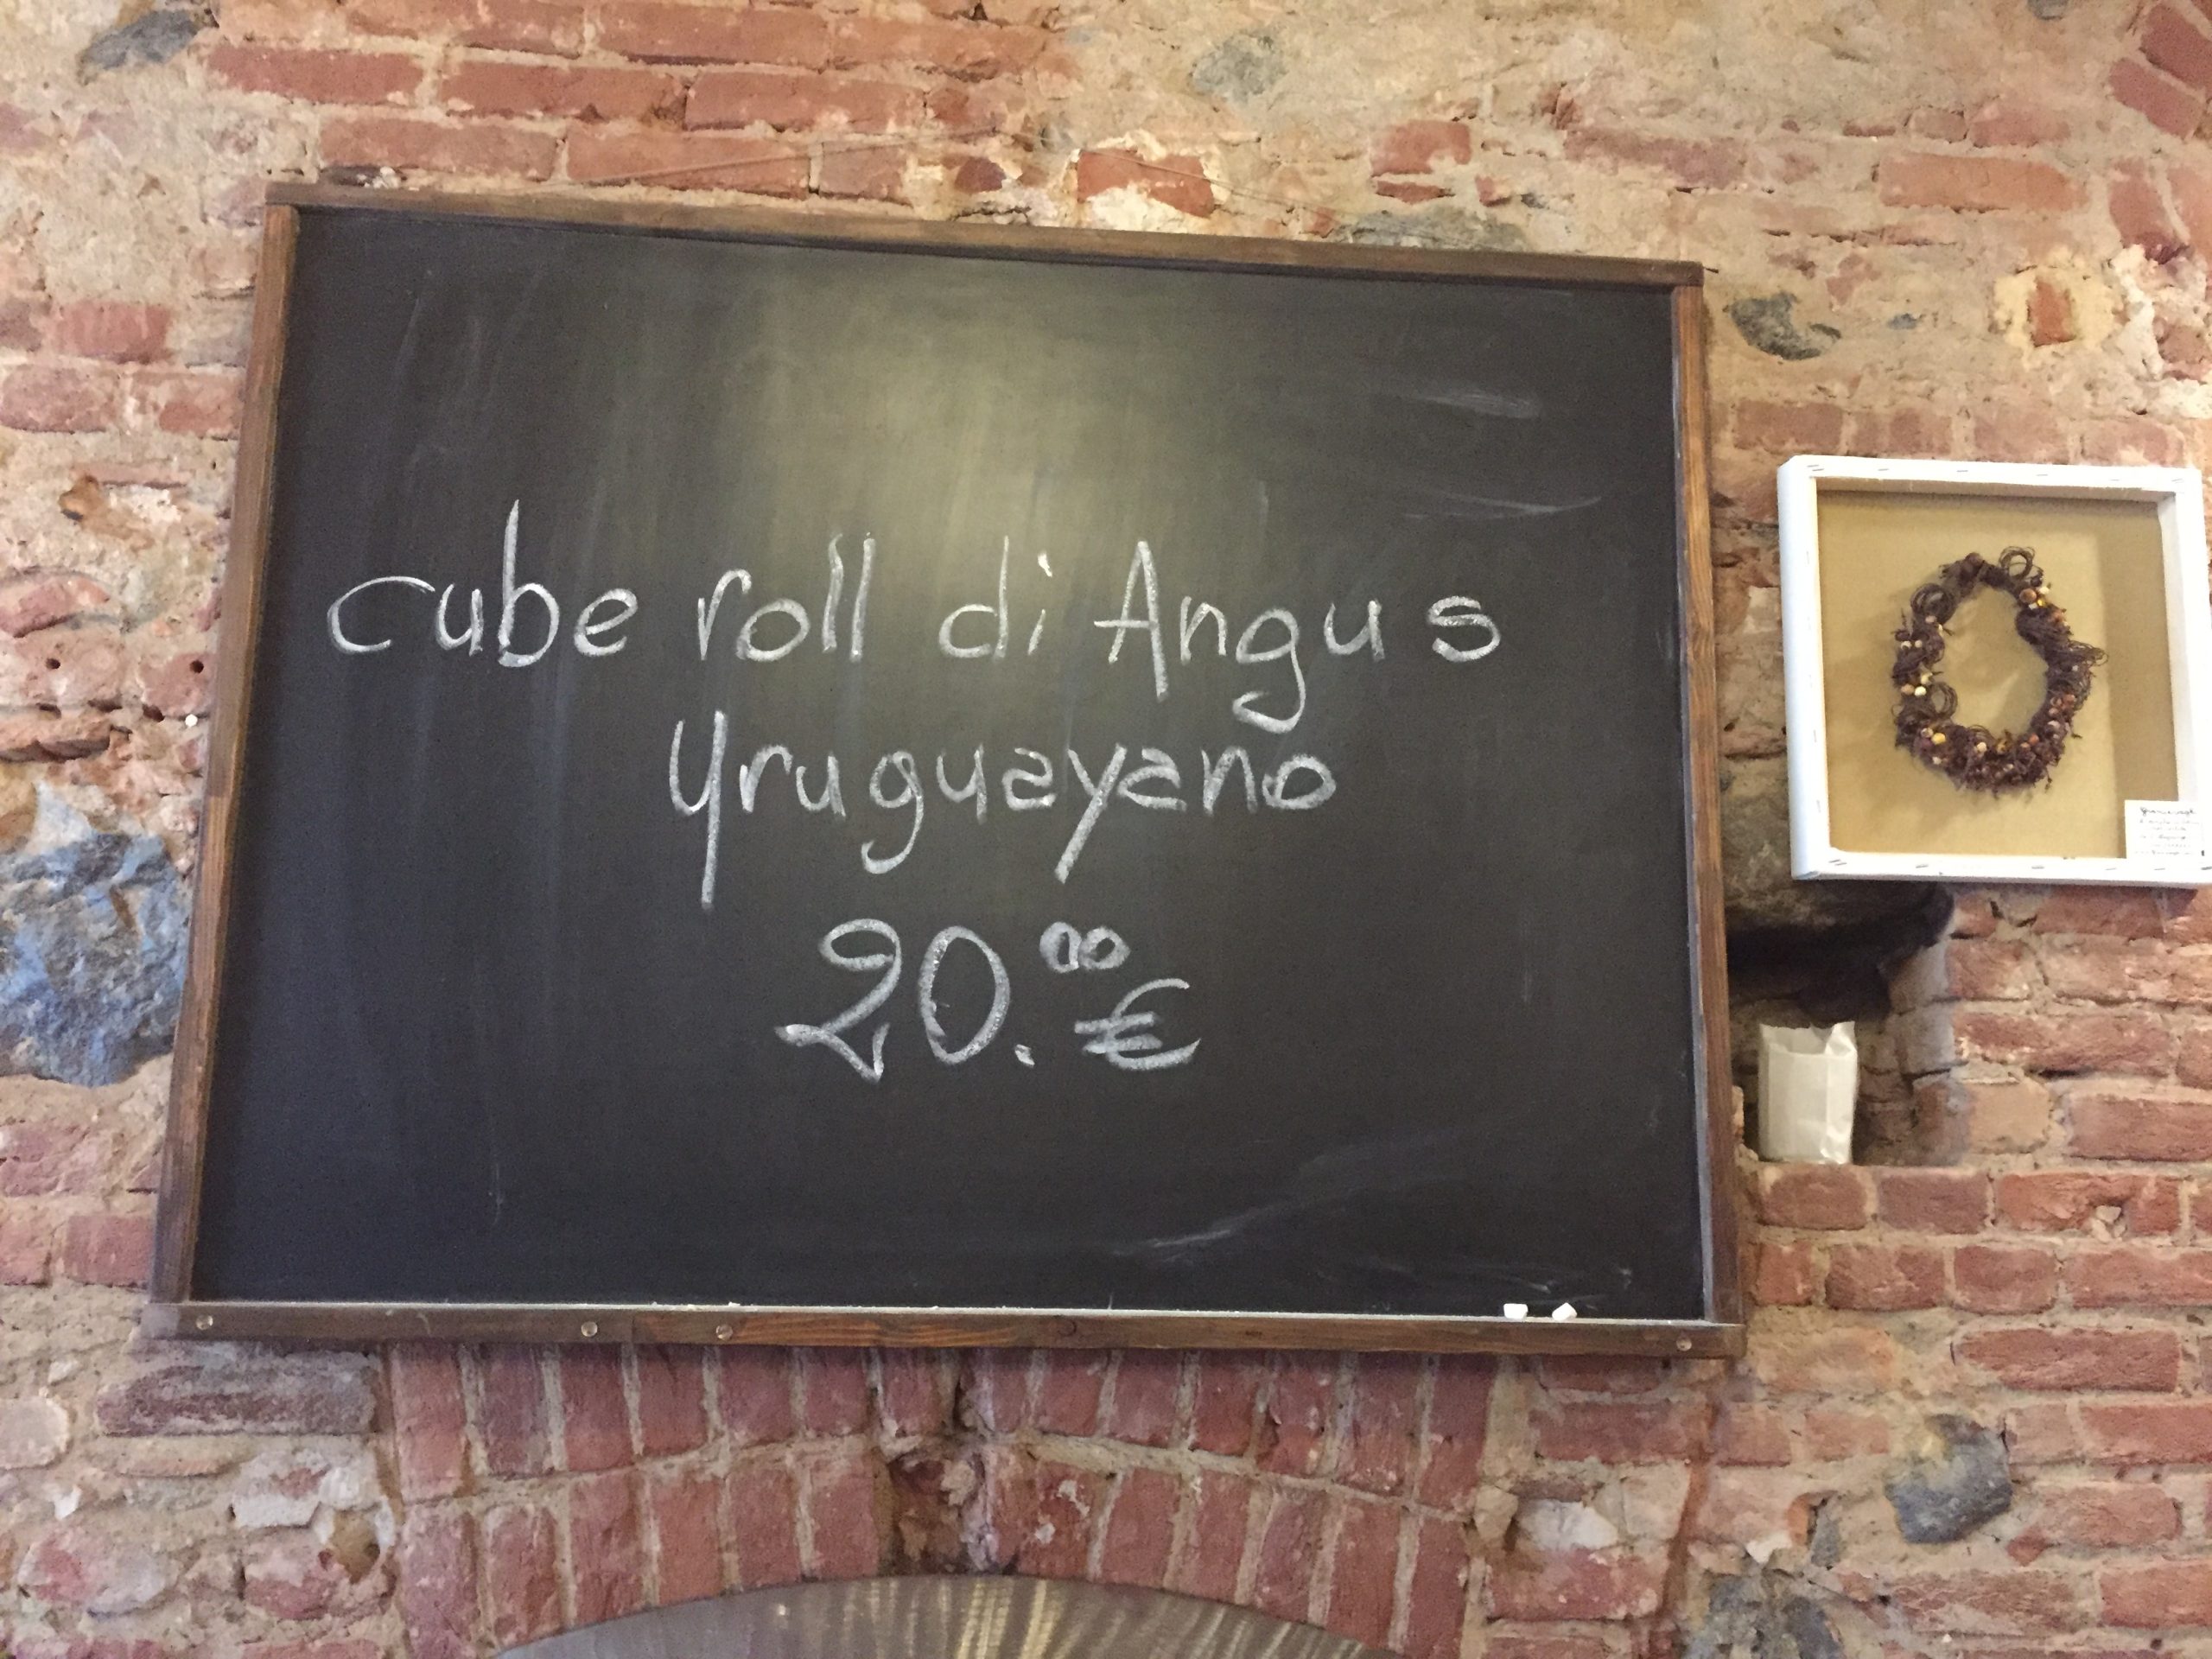 cube roll di Angus
Uruguayano
20.00 €